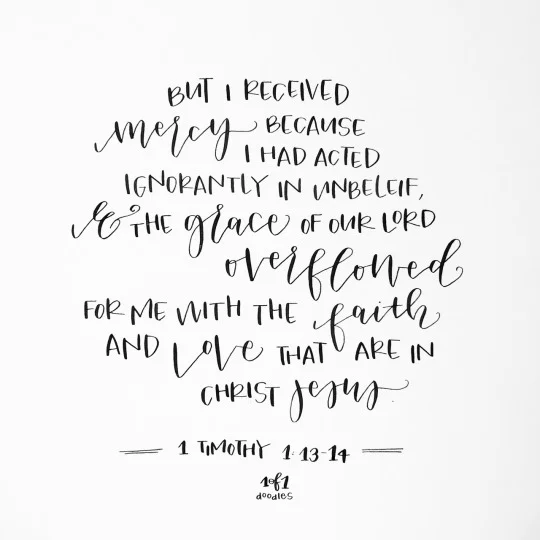 BUT I RECEIVED
mercy BECAUSE
I HAD ACTED
IGNORANTLY IN UNBELEIF,
& THE grace OF OUR LORD
overflowed
FOR ME WITH THE faith
AND love THAT ARE IN
CHRIST Jesus.
1 TIMOTHY 1:13-14
1of1
doodles